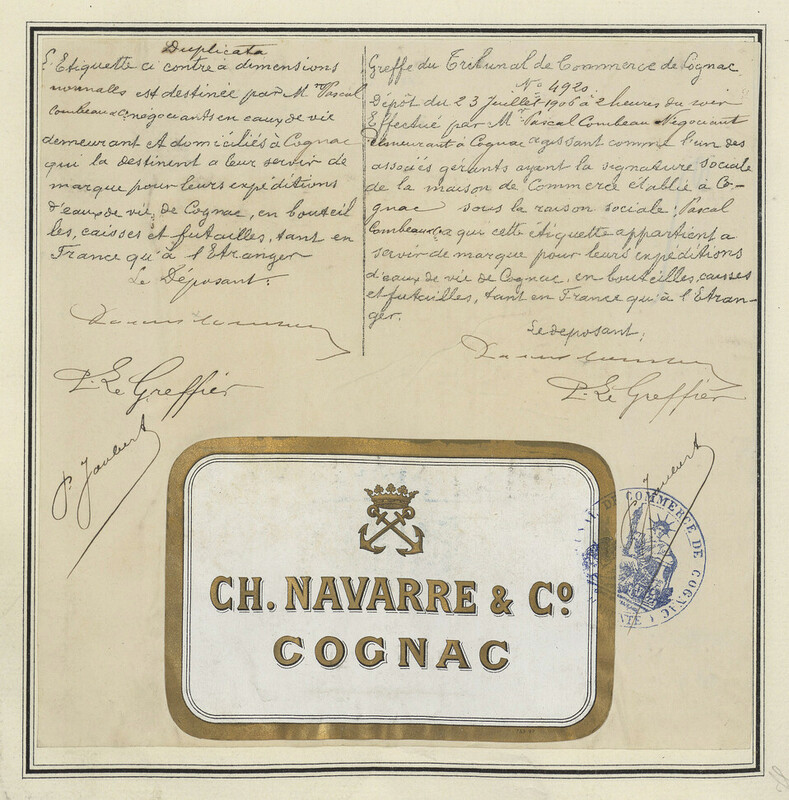 Duplicata
L'Etiquette ci contre à dimensions
normales est destinée par M. Pascal
Combeau & Co négociants en eaux de vie
demeurant et domiciliés à Cognac
qui la destinent a leur servir de
marque pour leurs expéditions
d'eaux de vie de Cognac, en bouteil
les, caisses et futailles, tant en
France qu'à l'Etranger
Le Déposant:
P. Le Greffier
P. Jaubert
Greffe du Tribunal de Commerce de Cognac
No 4920
Dépôt du 23 Juillet 1906 à 2 heures du soir
Effectué par M. Pascal Combeau Négociant
demeurant à Cognac agissant comme l'un des
associés gérants ayant la signature sociale
de la maison de Commerce établie à Co-
gnac sous la raison sociale: Pascal
Combeau & Co a qui cette etiquette appartient a
servir de marque pour leurs expéditions
d'eaux de vie de Cognac, en bouteilles, caisses
et futailles, tant en France qu'à l'Etran-
ger.
Le déposant;
P. Le Greffier
Jaubert
CH. NAVARRE & Cº
COGNAC
DE COMMERCE DE COGNAC